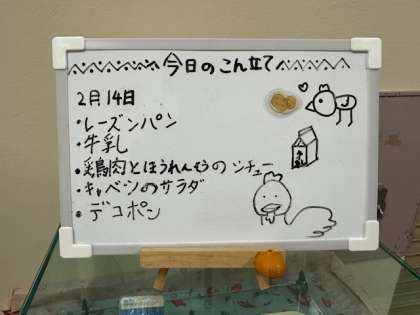 今日のこん立て
2月14日
・レーズンパン
・牛乳
・鶏肉とほうれんそうのシチュー
・キャベツのサラダ
・デコポン